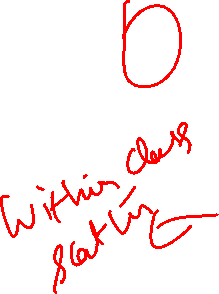 D
Within class
scatter